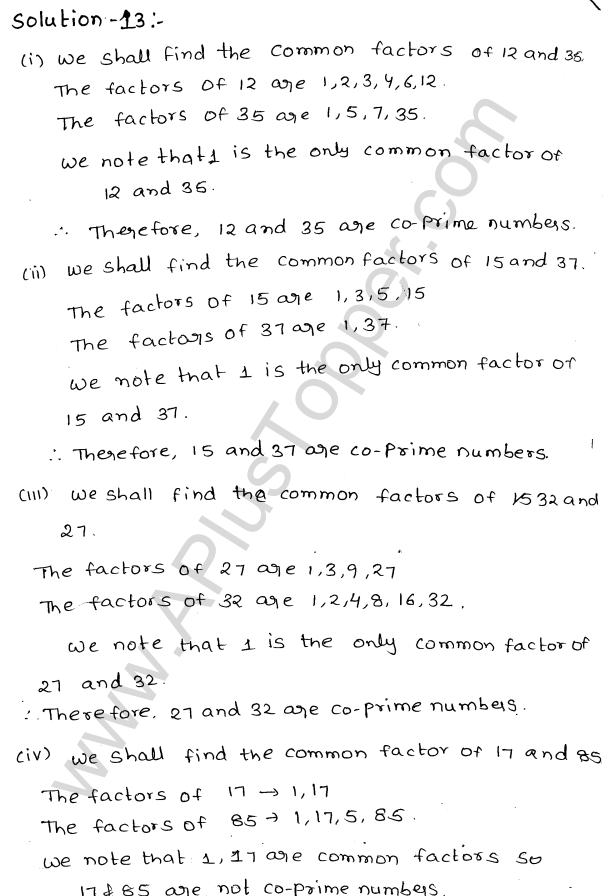 Solution-13:-
(i) We shall find the common factors of 12 and 35.
The factors of 12 are 1,2,3,4,6,12.
The factors of 35 are 1,5,7,35.
We note that 1 is the only common factor of
12 and 35.
∴ Therefore, 12 and 35 are co-prime numbers.
(ii) We shall find the common factors of 15 and 37.
The factors of 15 are 1,3,5,15
The factors of 37 are 1,37.
We note that 1 is the only common factor of
15 and 37.
∴ Therefore, 15 and 37 are co-prime numbers.
(iii) We shall find the common factors of 32 and
27.
The factors of 27 are 1,3,9,27
The factors of 32 are 1,2,4,8,16,32.
We note that 1 is the only common factor of
27 and 32.
∴ Therefore, 27 and 32 are co-prime numbers.
(iv) We shall find the common factor of 17 and 85
The factors of 17 → 1,17
The factors of 85 → 1,17,5,85.
We note that 1,17 are common factors so
17 & 85 are not co-prime numbers.
www.APlusTopper.com